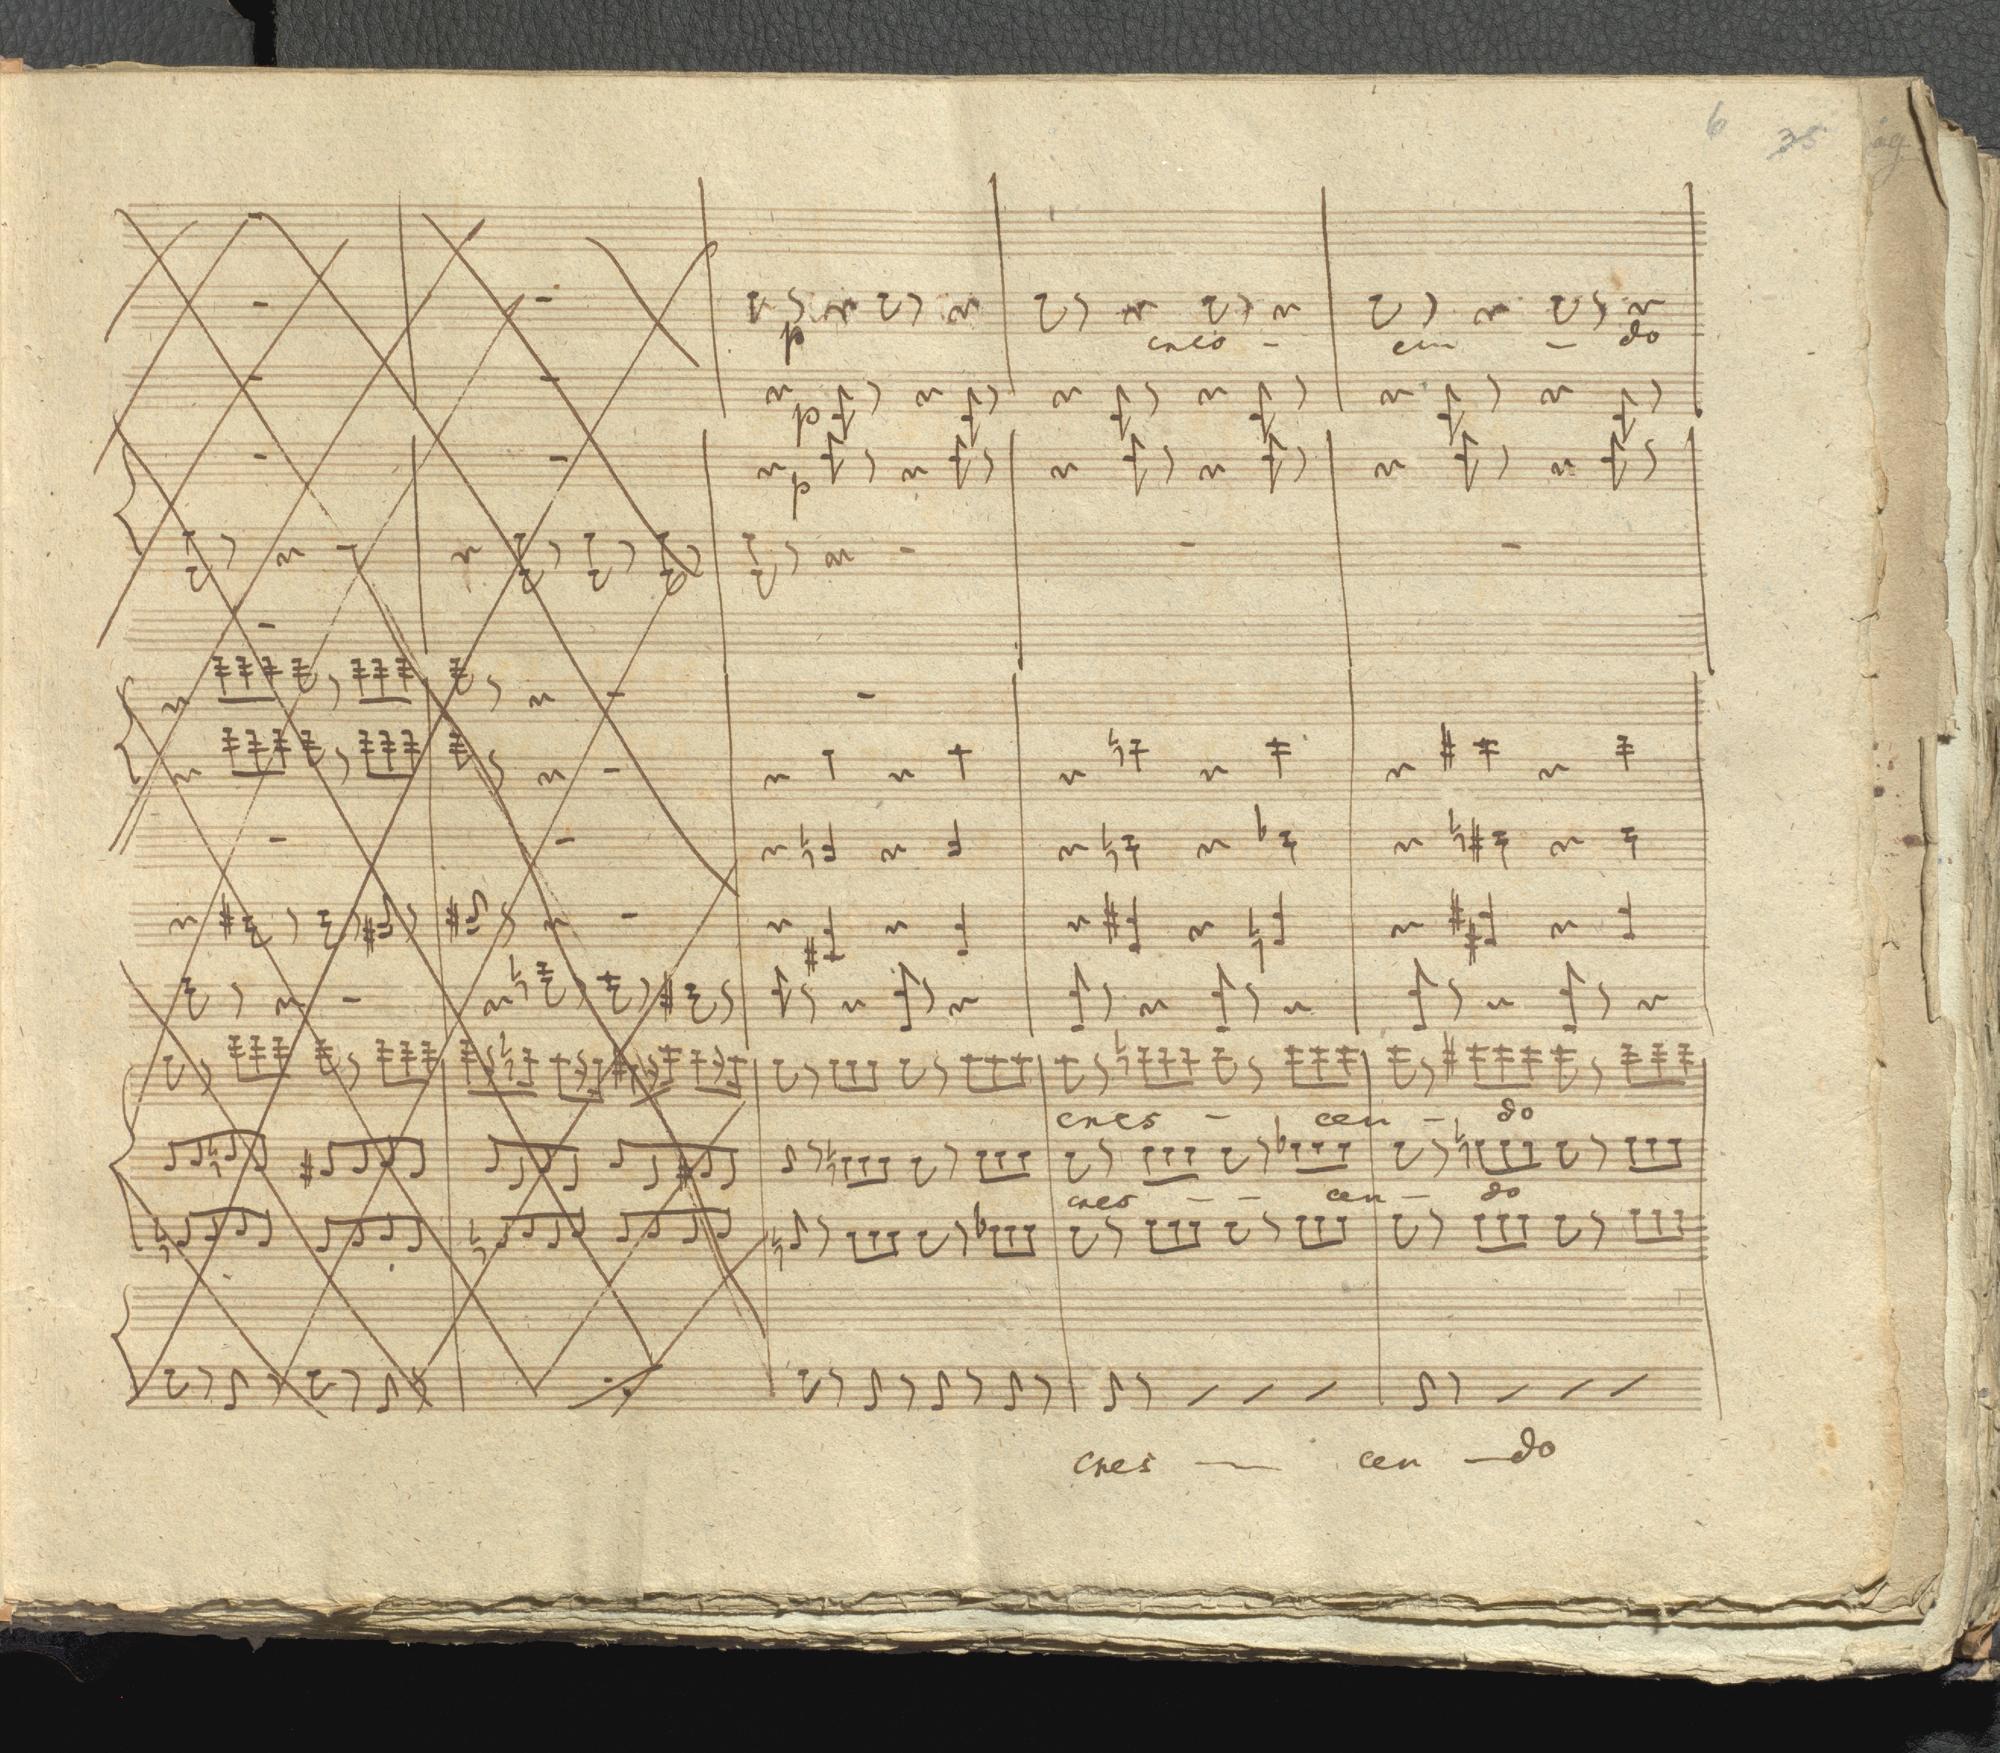 6 35
p
cres - cen - do
p
p
cres - cen - do
cres - - cen - do
cres — cen — do